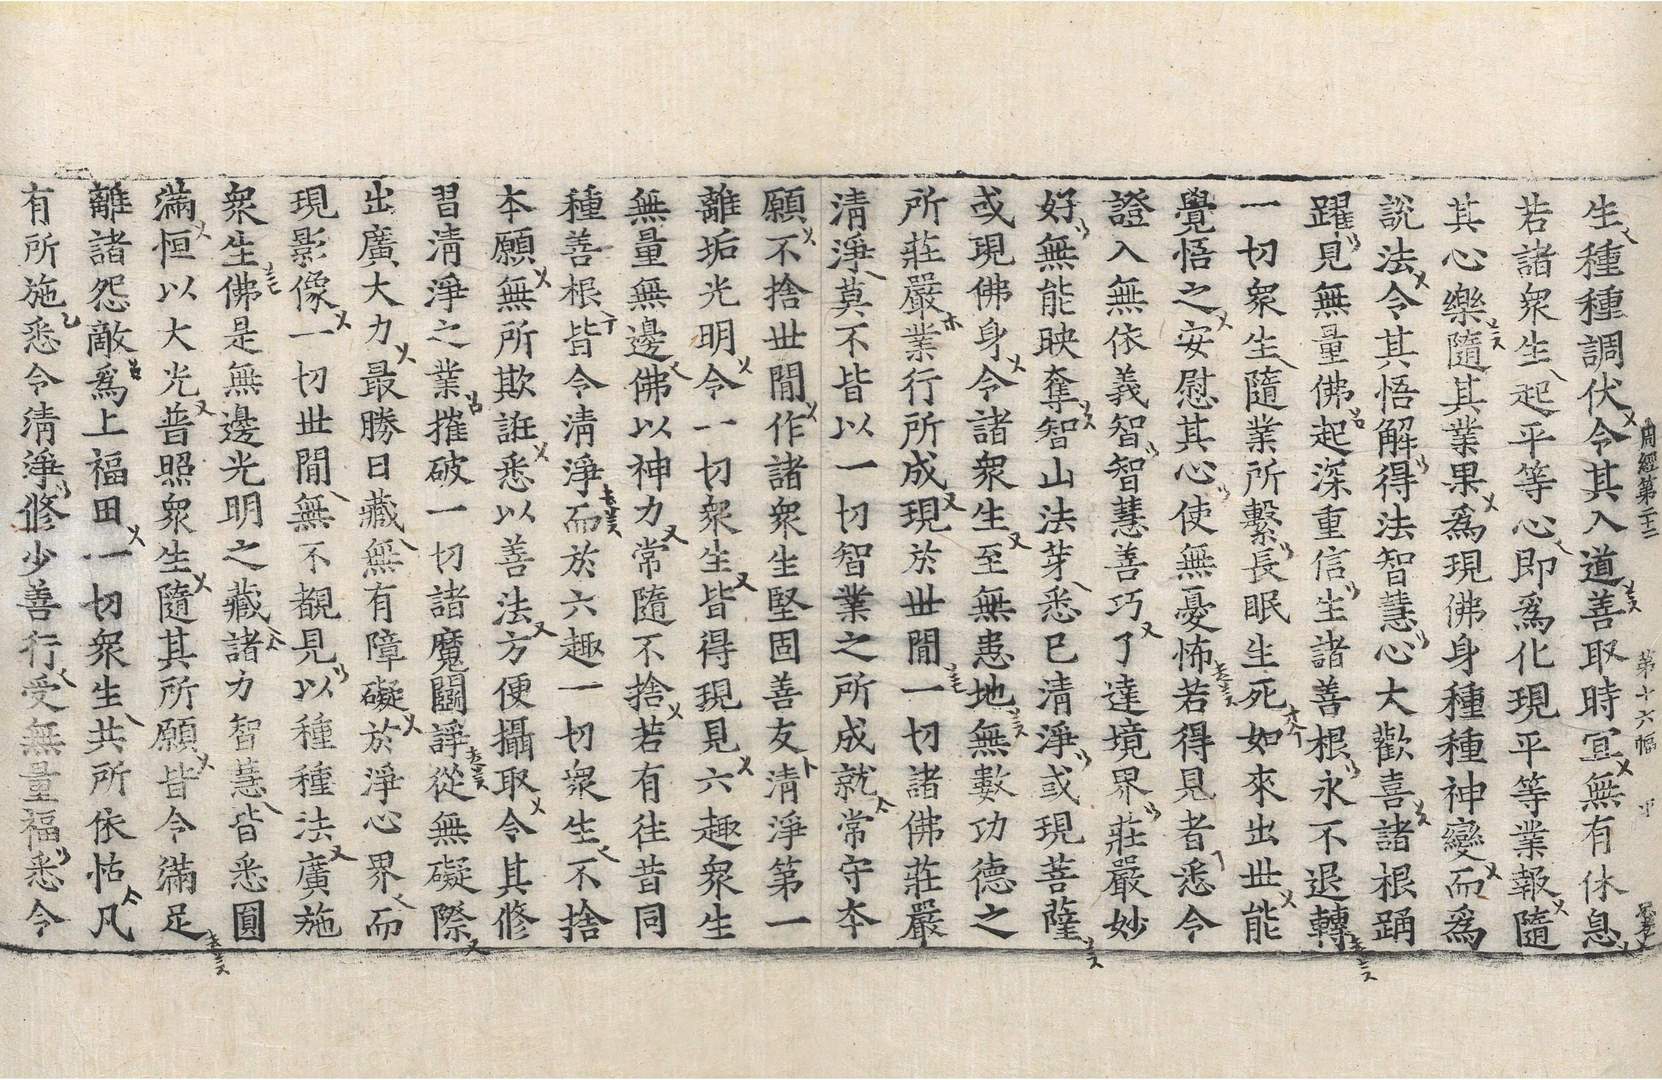 生種種調伏令其入道善取時宜無有休息
若諸衆生起平等心即爲化現平等業報隨
其心樂隨其業果爲現佛身種種神變而爲
說法令其悟解得法智慧心大歡喜諸根踊
躍見無量佛起深重信生諸善根永不退轉
一切衆生隨業所繫長眠生死如來出世能
覺悟之安慰其心使無憂怖若得見者悉令
證入無依義智智慧善巧了達境界莊嚴妙
好無能映奪智山法芽悉已清淨或現菩薩
或現佛身令諸衆生至無患地無數功德之
所莊嚴業行所成現於世間一切諸佛莊嚴
清淨莫不皆以一切智業之所成就常守本
願不捨世間作諸衆生堅固善友清淨第一
離垢光明令一切衆生皆得現見六趣衆生
無量無邊佛以神力常隨不捨若有往昔同
種善根皆令清淨而於六趣一切衆生不捨
本願無所欺誑悉以善法方便攝取令其修
習清淨之業摧破一切諸魔鬪諍從無礙際
出廣大力最勝日藏無有障礙於淨心界而
現影像一切世間無不覩見以種種法廣施
衆生佛是無邊光明之藏諸力智慧皆悉圓
滿恒以大光普照衆生隨其所願皆令滿足
離諸怨敵爲上福田一切衆生共所依怙凡
有所施悉令清淨修少善行受無量福悉令
周經第二十三 第十六幅